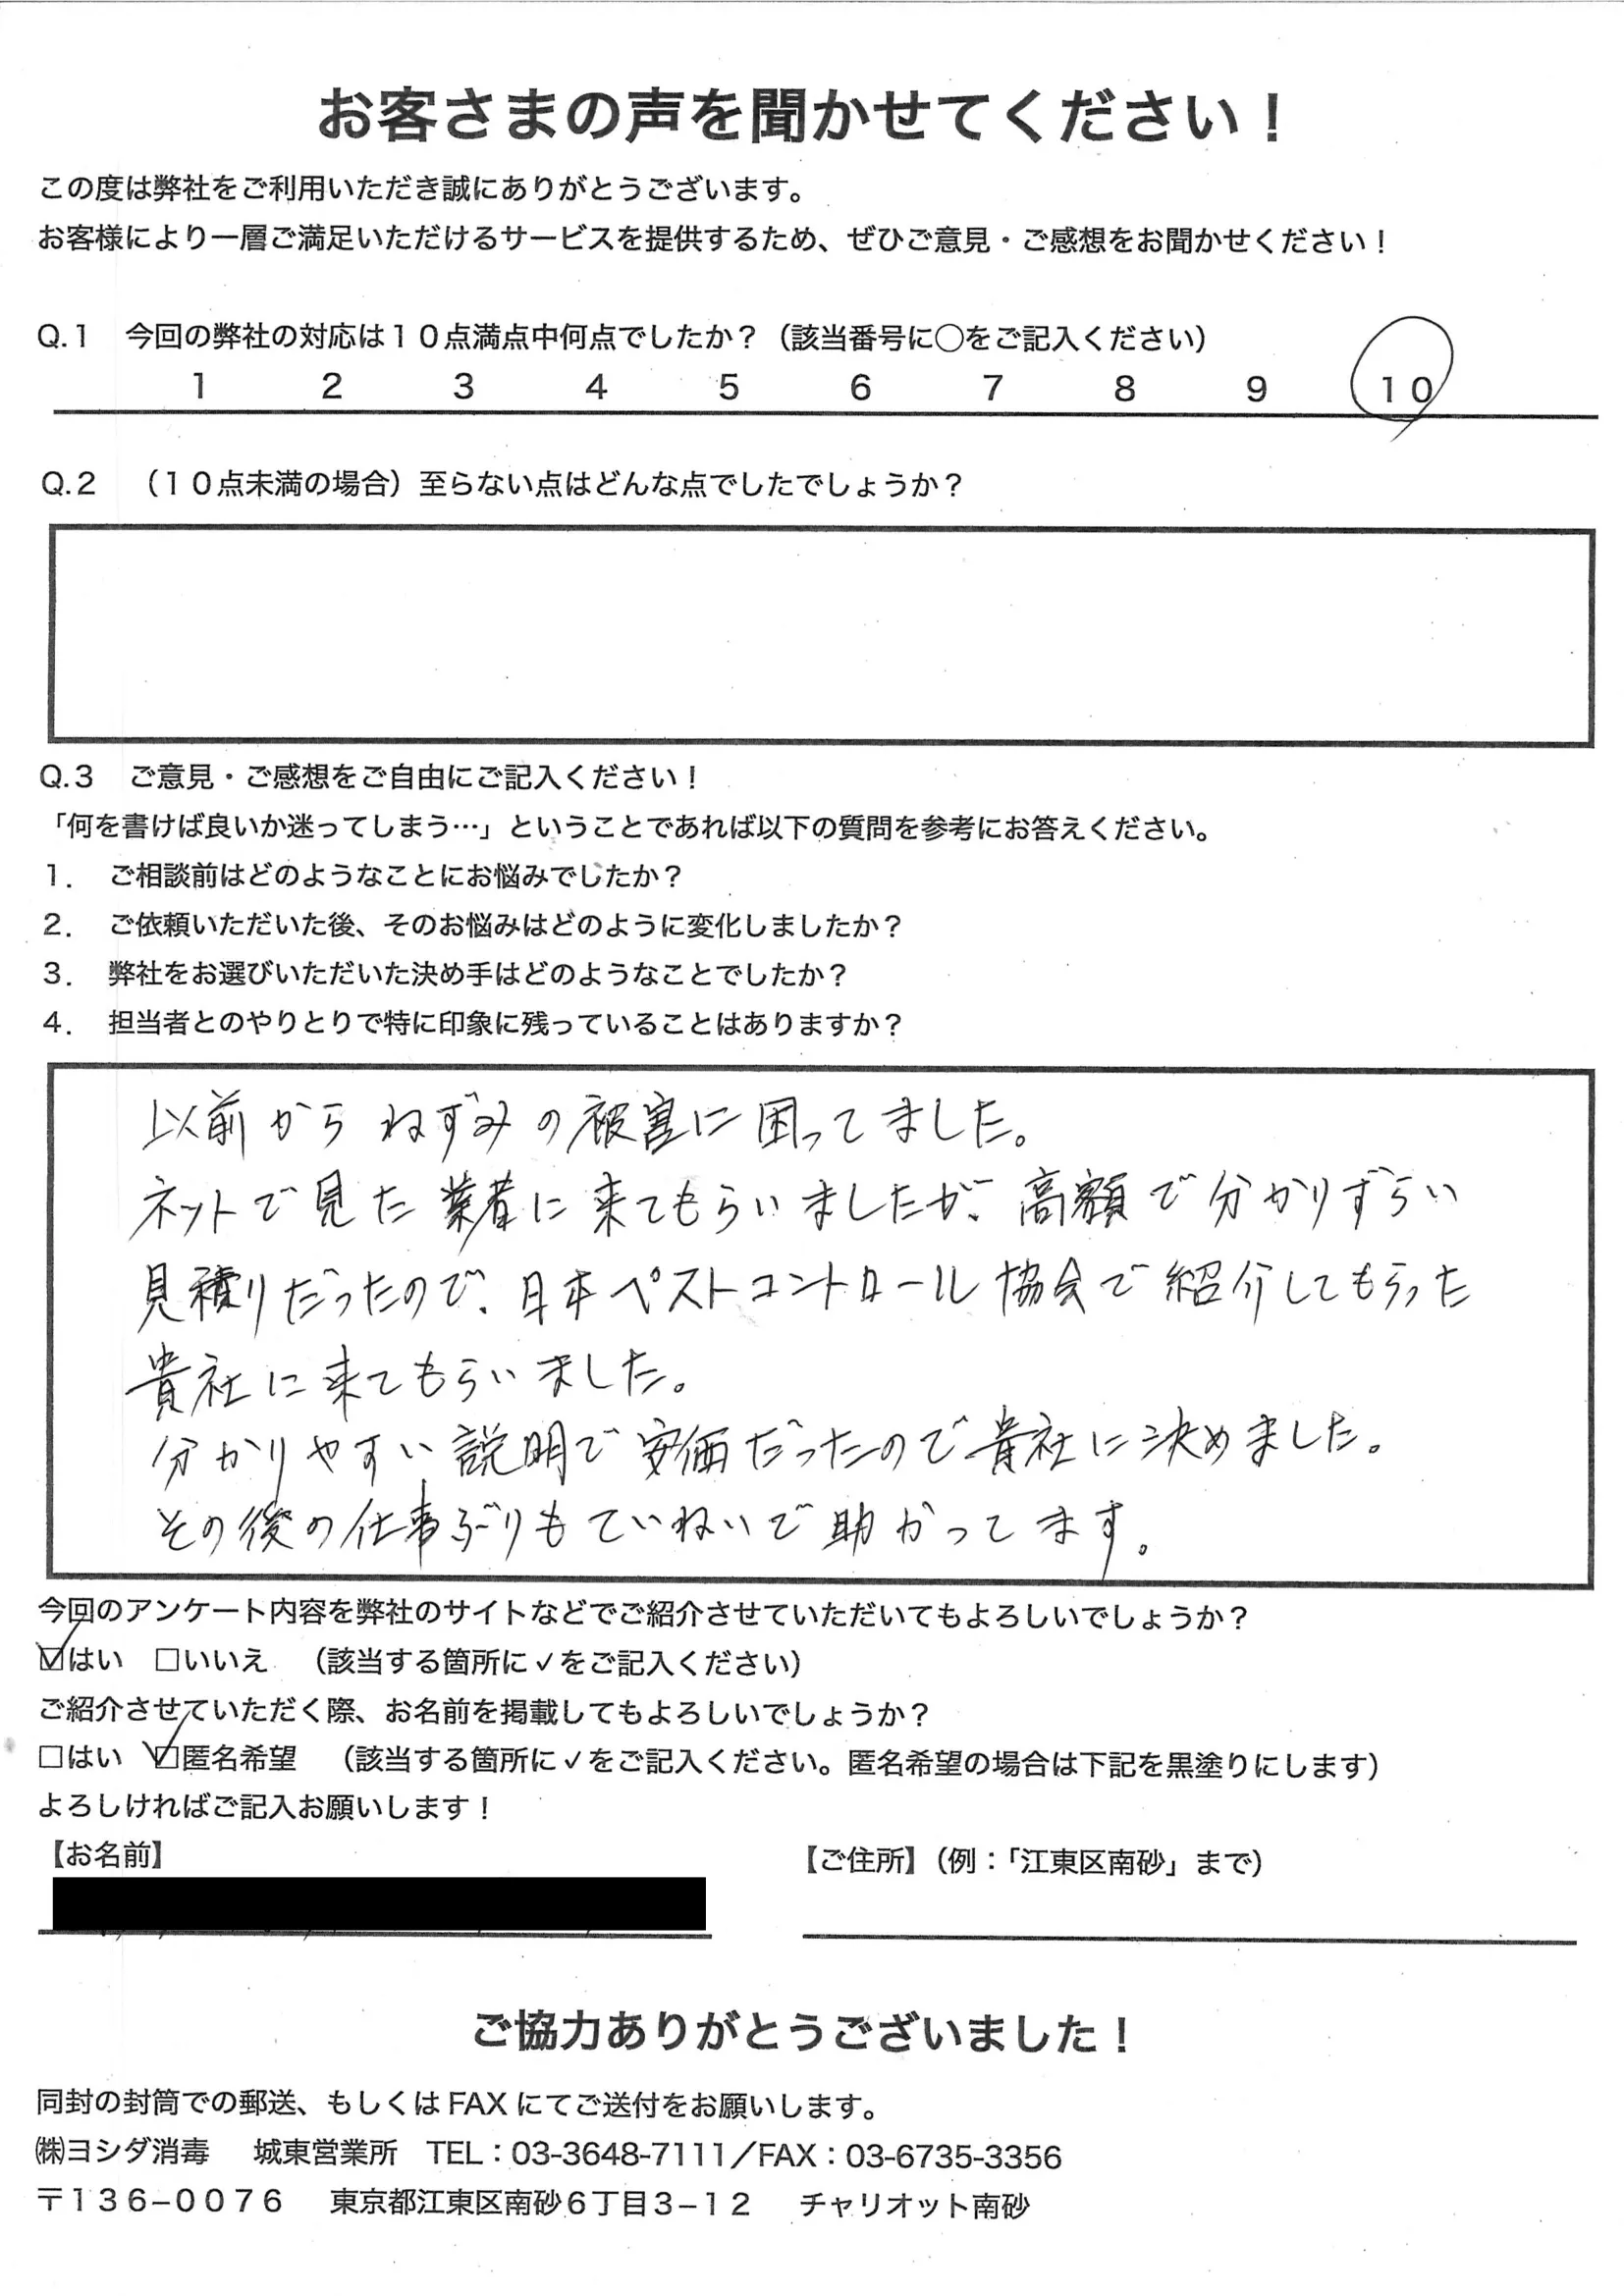 お客さまの声を聞かせてください！
この度は弊社をご利用いただき誠にありがとうございます。
お客様により一層ご満足いただけるサービスを提供するため、ぜひご意見・ご感想をお聞かせください！
Q.1　今回の弊社の対応は１０点満点中何点でしたか？（該当番号に○をご記入ください）
1 2 3 4 5 6 7 8 9 10
Q.2　（１０点未満の場合）至らない点はどんな点でしたでしょうか？
Q.3　ご意見・ご感想をご自由にご記入ください！
「何を書けば良いか迷ってしまう…」ということであれば以下の質問を参考にお答えください。
１．　ご相談前はどのようなことにお悩みでしたか？
２．　ご依頼いただいた後、そのお悩みはどのように変化しましたか？
３．　弊社をお選びいただいた決め手はどのようなことでしたか？
４．　担当者とのやりとりで特に印象に残っていることはありますか？
以前から ねずみの被害に困ってました。
ネットで見た業者に来てもらいましたが、高額で分かりずらい
見積りだったので、日本ペストコントロール協会で紹介してもらった
貴社に来てもらいました。
分かりやすい説明で安価だったので貴社に決めました。
その後の仕事ぶりもていねいで助かってます。
今回のアンケート内容を弊社のサイトなどでご紹介させていただいてもよろしいでしょうか？
☑はい　□いいえ　（該当する箇所に✓をご記入ください）
ご紹介させていただく際、お名前を掲載してもよろしいでしょうか？
□はい　☑匿名希望　（該当する箇所に✓をご記入ください。匿名希望の場合は下記を黒塗りにします）
よろしければご記入お願いします！
【お名前】　【ご住所】（例：「江東区南砂」まで）
ご協力ありがとうございました！
同封の封筒での郵送、もしくは FAX にてご送付をお願いします。
㈱ヨシダ消毒　城東営業所　TEL：03-3648-7111／FAX：03-6735-3356
〒１３６−００７６　東京都江東区南砂６丁目３−１２　チャリオット南砂